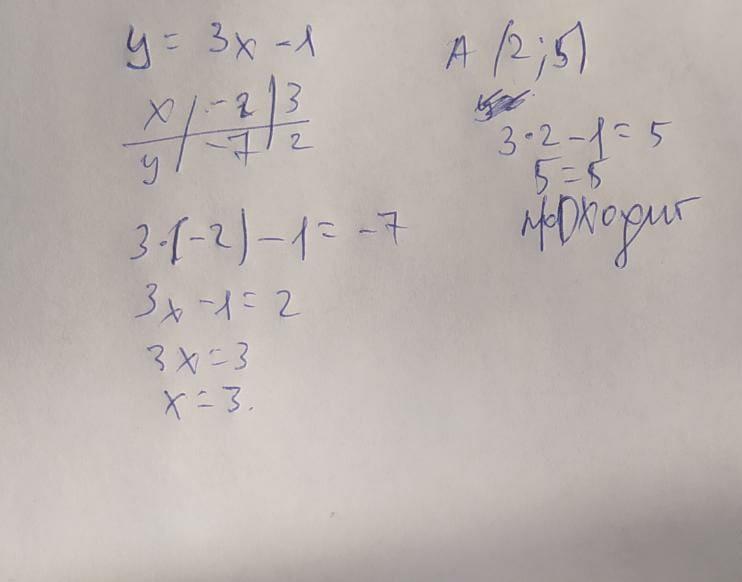 y = 3x - 1
x | -2 | 3
y | -7 | 2
3·(-2) - 1 = -7
3x - 1 = 2
3x = 3
x = 3.
A (2; 5)
3·2 - 1 = 5
5 = 5
проходит